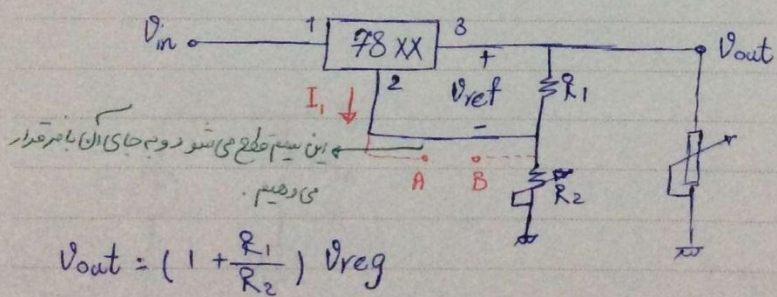 Vin 1 78XX 3 Vout
2 + Vref - R1
I1
این سیم قطع می شود و به جای آن بافر قرار
می دهیم.
A B R2
Vout = (1 + R1/R2) Vreg